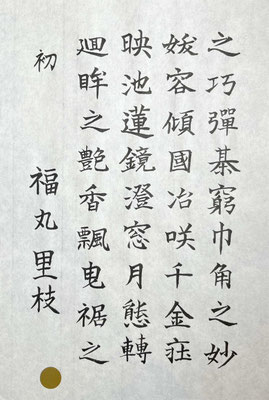 之巧彈棊窮巾角之妙
姣容傾國冶咲千金荘
映池蓮鏡澄窓月態轉
廻眸之艶香飄曳裾之
初 福丸里枝